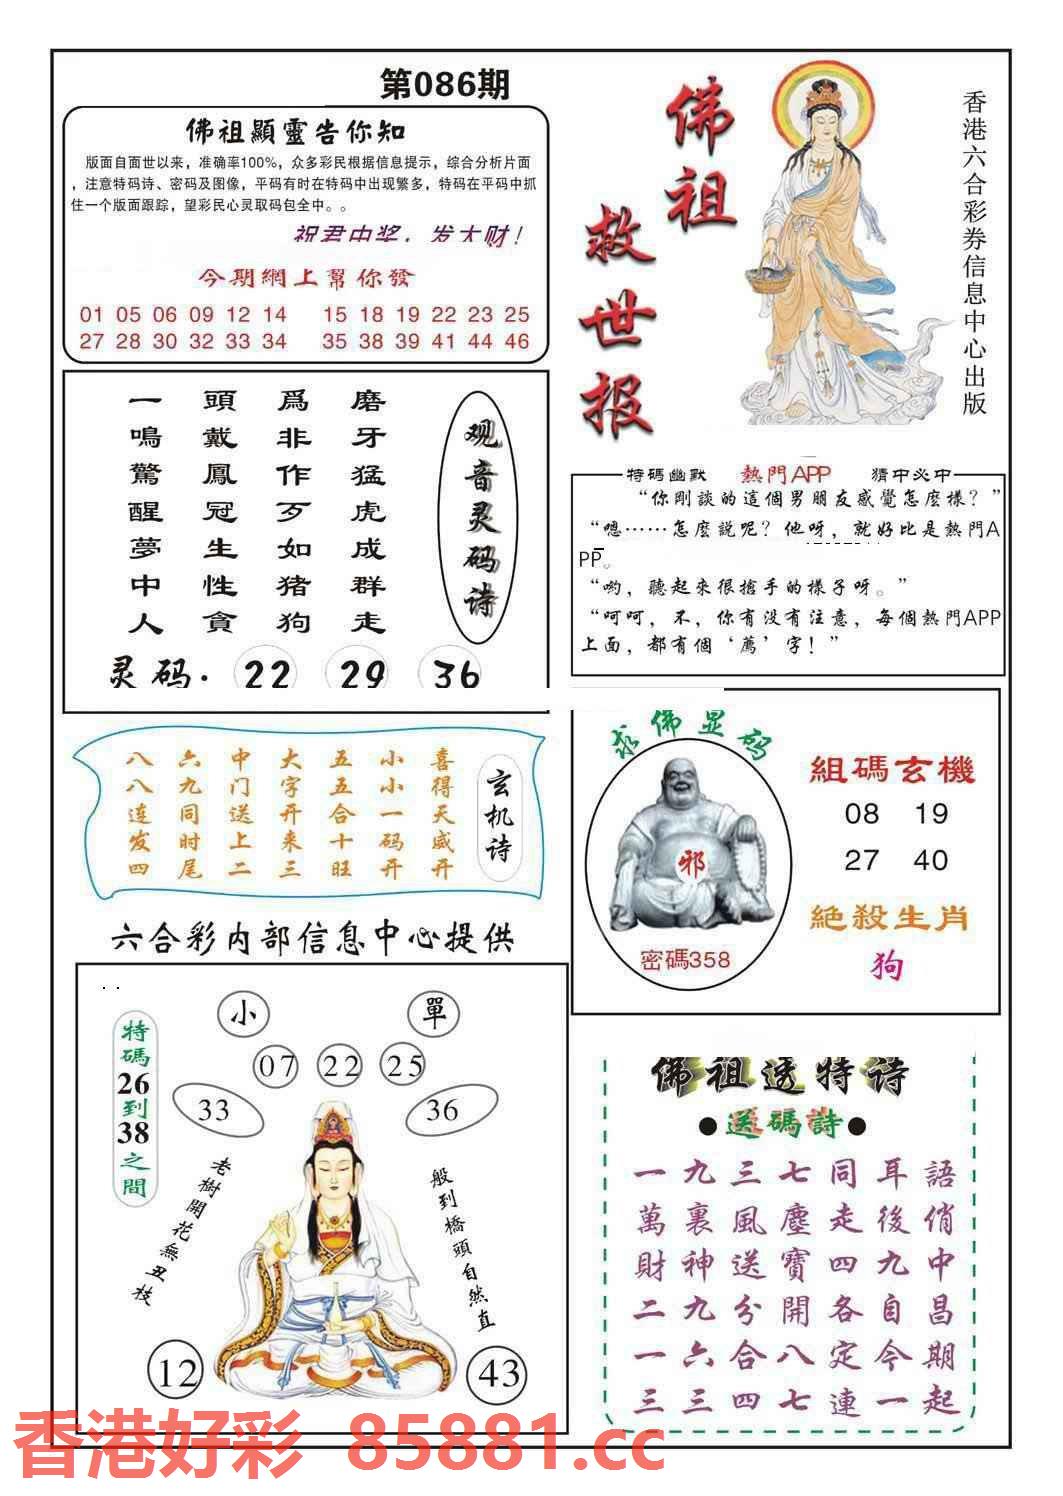 第086期
佛祖顯靈告你知
版面自面世以来，准确率100%，众多彩民根据信息提示，综合分析片面
，注意特码诗、密码及图像，平码有时在特码中出现繁多，特码在平码中抓
住一个版面跟踪，望彩民心灵取码包全中。。
祝君中奖，发大财！
今期網上幫你發
01 05 06 09 12 14 15 18 19 22 23 25
27 28 30 32 33 34 35 38 39 41 44 46
佛祖
救世报
香港六合彩券信息中心出版
观音灵码诗
磨牙猛虎成群走
爲非作歹如猪狗
頭戴鳳冠生性貪
一鳴驚醒夢中人
灵码. 22 29 36
特碼幽默 熱門APP 猜中必中
“你剛談的這個男朋友感覺怎麼樣？”
“嗯……怎麼說呢？他呀，就好比是熱門A
PP。
“喲，聽起來很搶手的樣子呀。”
“呵呵，不，你有没有注意，每個熱門APP
上面，都有個‘薦’字！”
玄机诗
喜得天威开
小小一码开
五五合十旺
大字开来三
中门送上二
六九同时尾
八八连发四
求佛显码
邪
密碼358
組碼玄機
08 19
27 40
絕殺生肖
狗
六合彩内部信息中心提供
特碼26到38之間
小 單
07 22 25
33 36
老樹開花無丑枝
般到橋頭自然直
12 43
佛祖透特诗
●送碼詩●
一九三七同耳語
萬裏風塵走後俏
財神送寶四九中
二九分開各自昌
一六合八定今期
三三四七連一起
香港好彩 85881.cc